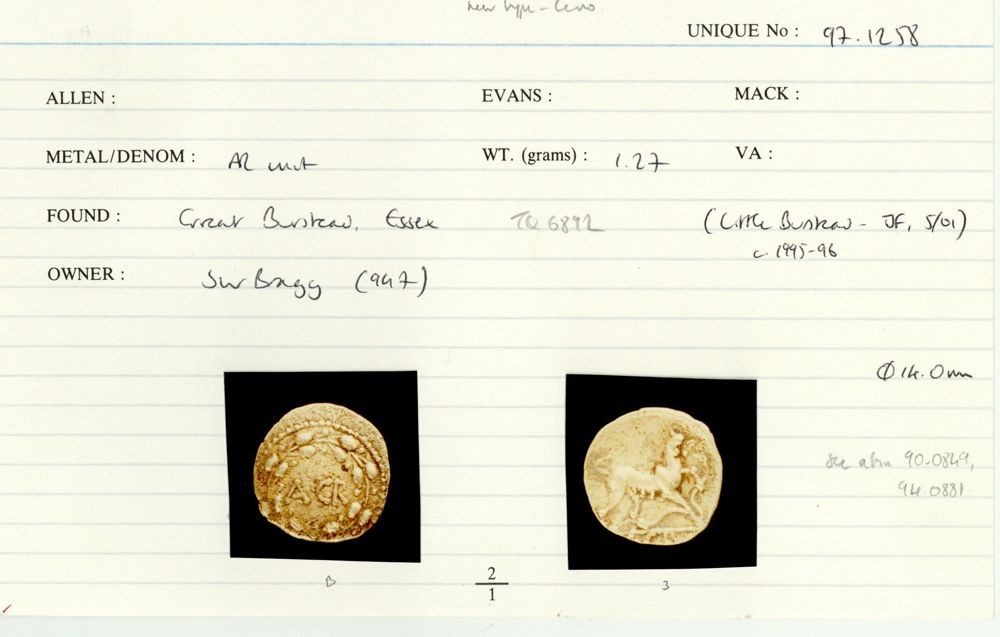 new type -
UNIQUE No : 97.1258
ALLEN : EVANS : MACK :
METAL/DENOM : AR unit WT. (grams) : 1.27 VA :
FOUND : Great Burstead, Essex TQ 6892 (Little Burstead - JF, 5/01)
c. 1995-96
OWNER : Bragg (947)
Ø 14.0mm
see also 90.0849,
94.0881
B 2/1 3